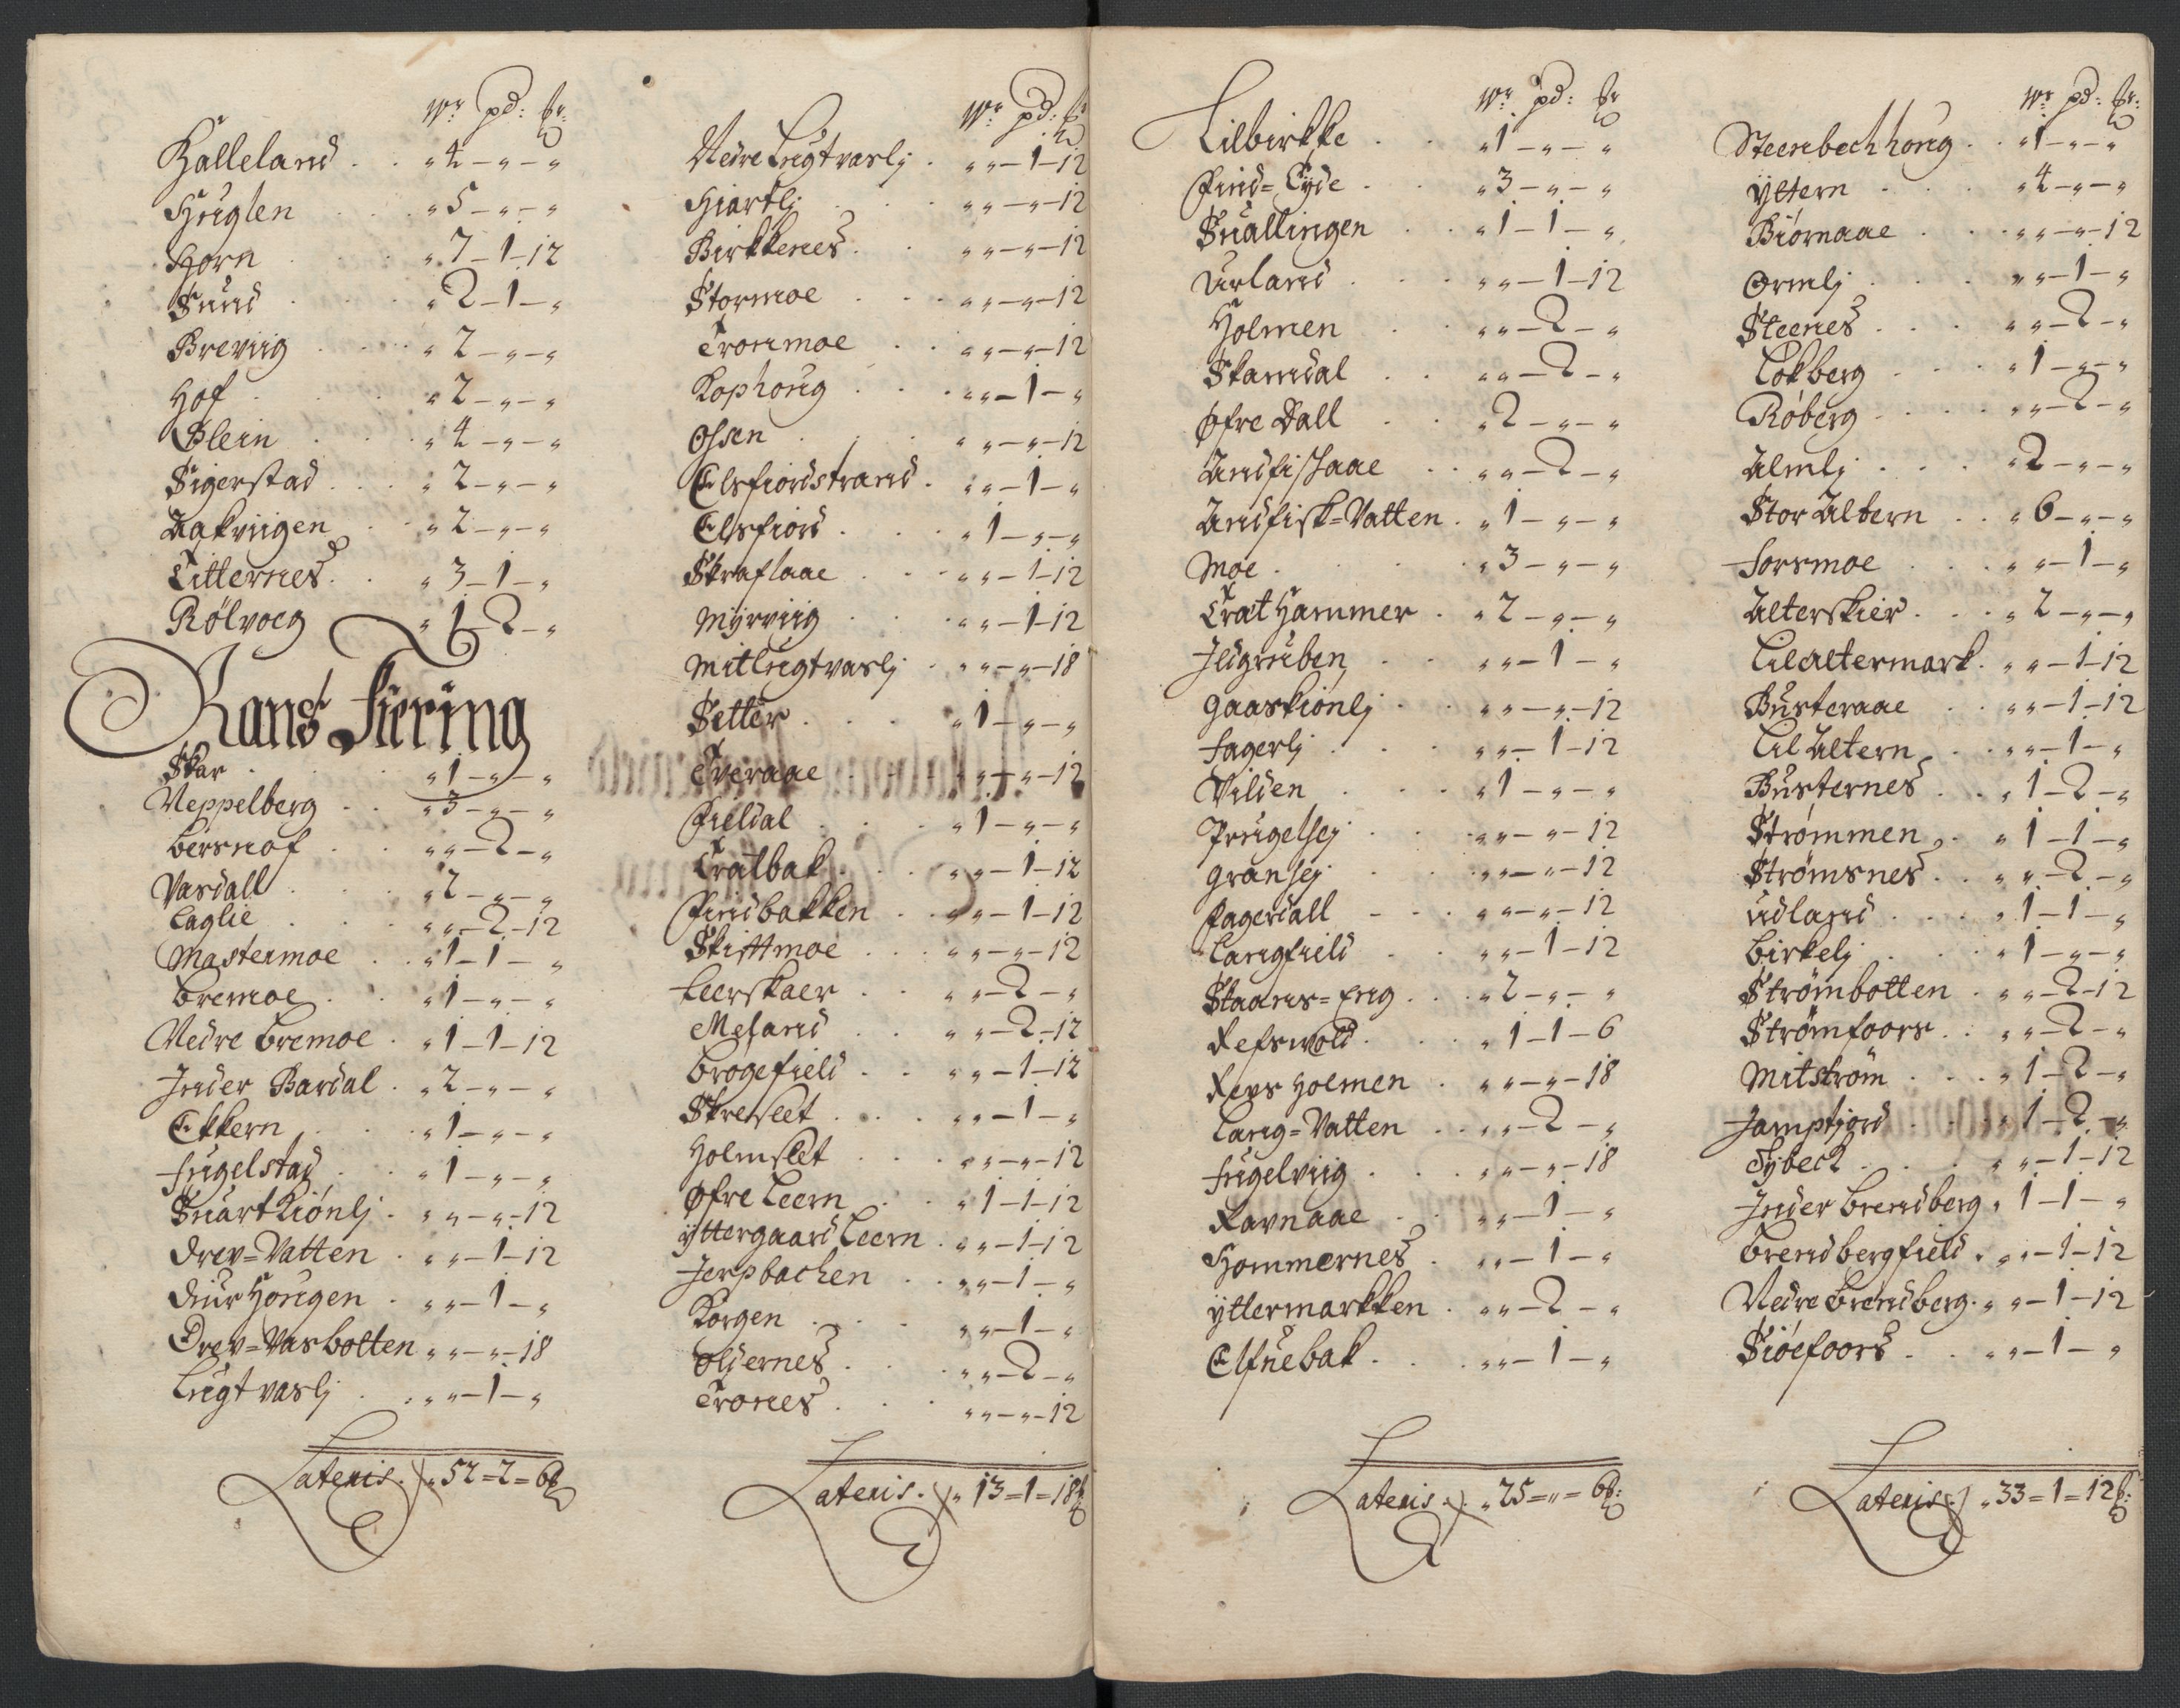 Wr pd: ℔:
Halleland . . „ 4 – „ – „
Huglen . . „ 5 – „ – „
Horn . . „ 7 – 1 – 12
Sund . . „ 2 – 1 – „
Breviig . . „ 2 – „ – „
Hof . . „ 2 – „ – „
Blein . . „ 4 – „ – „
Sigerstad . . „ 2 – „ – „
Aakviigen . . „ 2 – „ – „
Titternes . . „ 3 – 1 – „
Rølvoeg „ 1 – 2 – „
Rans fiering
Skar . . „ 1 – „ – „
Neppelberg . . „ 3 – „ – „
Bersnof . . „ „ – 2 – „
Vardall . . „ 2 – „ – „
Laglie . . „ „ – 2 – 12
Mastermoe . . „ 1 – 1 – „
Bremoe . . „ 1 – „ – „
Nedre Bremoe . „ 1 – 1 – 12
Inder Bardal . „ 2 – „ – „
Ekkern . . „ 1 – „ – „
Fugelstad . . „ 1 – „ – „
Suart Kiønlj . „ „ – „ – 12
Drev=Vatten . „ „ – 1 – 12
Diur Hougen . „ „ – 1 – „
Drev=Vasbotten „ „ – „ – 18
Lugtvaslj . . „ „ – 1 – „
Lateris . „ 52 = 2 = 6 ℔
Wr pd: ℔
Nedre Lugtvaslj . „ „ – 1 – 12
Hiartlj . . „ „ – „ – 12
Birkkenes . . „ „ – „ – 12
Stormoe . . „ „ – „ – 12
Tronmoe . . „ „ – „ – 12
Kophoug . . „ „ – 1 – „
Olsen . . „ „ – „ – 12
Elsfiordstrand . „ „ – 1 – „
Elsfiord . . „ 1 – „ – „
Skraflaae . . „ „ – 1 – 12
Myrviig . . „ „ – 1 – 12
Mitlugtvaslj . „ „ – „ – 18
Setter . . „ 1 – „ – „
Tveraae . . „ „ – „ – 12
Fieldal . . „ 1 – „ – „
Tratbak . . „ „ – 1 – 12
Findbakken . . „ „ – 1 – 12
Skittmoe . . „ „ – „ – 12
Leerskaer . . „ „ – 2 – „
Meland . . „ „ – 2 – 12
Brøgefield . . „ „ – 1 – 12
Skreslet . . „ „ – 1 – „
Holmslet . . „ „ – „ – 12
Øfre Leern . . „ 1 – 1 – 12
Yttergaard Leern . „ „ – 1 – 12
Jerpbachen . . „ „ – 1 – „
Korgen . . „ „ – 1 – „
Oldernes . . „ „ – 2 – „
Trones . . „ „ – „ – 12
Lateris . „ 13 = 1 = 18 ℔
Wr pd: ℔
Lilbirkke . . „ 1 – „ – „
Find=Eyde . . „ 3 – „ – „
Suallingen . . „ 1 – 1 – „
Urland . . „ „ – 1 – 12
Holmen . . „ „ – 2 – „
Skamdal . . „ „ – 2 – „
Øfre Dall . . „ 2 – „ – „
Andfiskaae . . „ „ – 2 – „
Andfisk=Vatten . „ 1 – „ – „
Moe . . „ 3 – „ – „
Trat Hammer . „ 2 – „ – „
Ildgruben . . „ „ – 1 – „
Gaaskiønlj . . „ „ – „ – 12
Fagerlj . . „ „ – 1 – 12
Vilden . . „ 1 – „ – „
Prugelhej . . „ „ – „ – 12
Granhej . . „ „ – „ – 12
Fagerdall . . „ „ – „ – 12
Langfield . . „ „ – 1 – 12
Staars=Eng . . „ 2 – „ – „
Refswold . . „ 1 – 1 – 6
Revs Holmen . „ „ – „ – 18
Lang=Vatten . . „ „ – 2 – „
Fugelviig . . „ „ – „ – 18
Ravnaae . . „ „ – 1 – „
Hommernes . „ „ – 1 – „
Yttermarkken . „ „ – 2 – „
Elfuebak . . „ „ – 1 – „
Lateris . „ 25 = „ = 6 ℔:
Wr pd: ℔:
Steenbechhoug . . „ 1 – „ – „
Yttern . . „ 4 – „ – „
Biørnaae . . „ „ – „ – 12
Ormlj . . „ „ – 1 – „
Steenes . . „ „ – 2 – „
Løkberg . . „ 1 – „ – „
Røberg . . „ „ – 2 – „
Almlj . . „ 2 – „ – „
Stor Altern . . „ 6 – „ – „
Forsmoe . . „ „ – 1 – „
Alterskier . . „ 2 – „ – „
Lilaltermark . „ „ – 1 – 12
Busteraae . . „ „ – 1 – 12
Lil Altern . . „ „ – 1 – „
Busternes . . „ 1 – 2 – „
Strømmen . . „ 1 – 1 – „
Strømsnes . . „ „ – 2 – „
Udland . . „ 1 – 1 – „
Birkelj . . „ 1 – „ – „
Strømbotten . „ „ – 2 – 12
Strømfoors . . „ „ – 2 – „
Mitstrøm . . „ 1 – 2 – „
Jampfjord . . „ 1 – 2 – „
Sybeck . . „ „ – 1 – 12
Inder Brendberg „ 1 – 1 – „
Brendbergfield . „ „ – 1 – 12
Nedre Brendberg . „ „ – 1 – 12
Siøefoors . . „ „ – 1 – „
Lateris . „ 33 = 1 = 12 ℔: